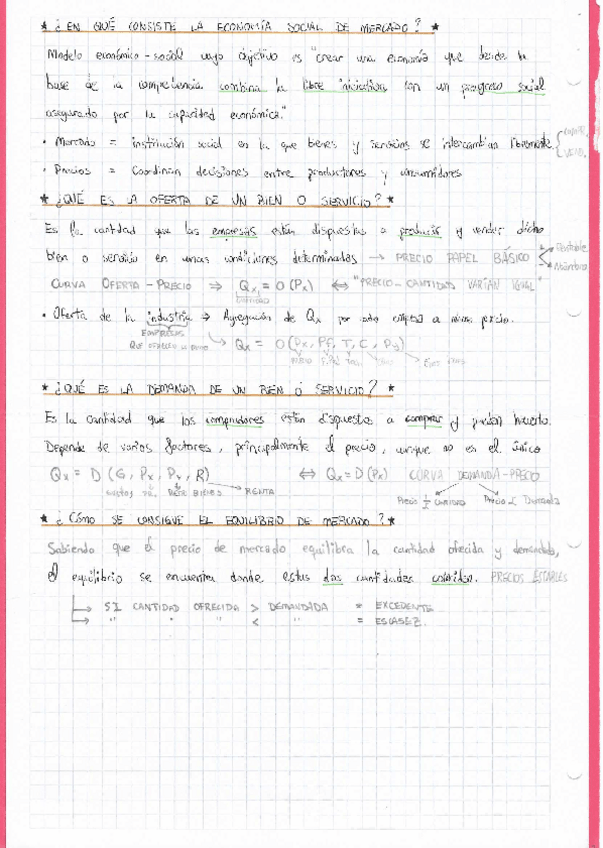 * ¿EN QUÉ CONSISTE LA ECONOMÍA SOCIAL DE MERCADO? *
Modelo económico - social cuyo objetivo es "crear una economía que desde la
base de la competencia combina la libre iniciativa con un progreso social
asegurado por la capacidad económica."
· Mercado = institución social en la que bienes y servicios se intercambian libremente
· Precios = Coordinan decisiones entre productores y consumidores
* ¿QUÉ ES LA OFERTA DE UN BIEN O SERVICIO? *
Es la cantidad que las empresas están dispuestas a producir y vender dicho
bien o servicio en unas condiciones determinadas → PRECIO PAPEL BÁSICO
CURVA OFERTA - PRECIO ⇒ Qx = O (Px) ⇔ "PRECIO - CANTIDAD VARÍAN IGUAL"
· Oferta de la industria → Agregación de Qx por cada empresa a mismo precio.
EMPRESAS
QUE OFRECEN Qx = O (Px, Pf, T, C, Py)
* ¿QUÉ ES LA DEMANDA DE UN BIEN O SERVICIO? *
Es la cantidad que los compradores están dispuestos a comprar y puedan hacerlo.
Depende de varios factores, principalmente el precio, aunque no es el único
Qx = D (G, Px, Py, R) ⇔ Qx = D (Px) CURVA DEMANDA - PRECIO
GUSTOS BIENES RENTA
* ¿CÓMO SE CONSIGUE EL EQUILIBRIO DE MERCADO? *
Sabiendo que el precio de mercado equilibra la cantidad ofrecida y demandada,
el equilibrio se encuentra donde estas dos cantidades coincidan. PRECIOS ESTABLES
→ SI CANTIDAD OFRECIDA > DEMANDADA = EXCEDENTE
→ " " " < " = ESCASEZ.